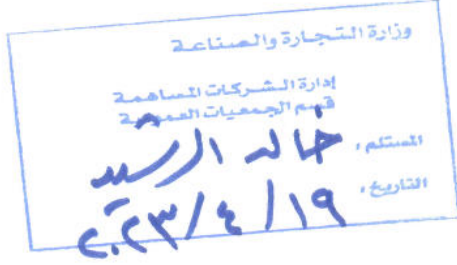 وزارة التجارة والصناعة
إدارة الشركات المساهمة
قسم الجمعيات العمومية
المستلم، خالد الرشيد
التاريخ، ١٩/٤/٢٠٢٣